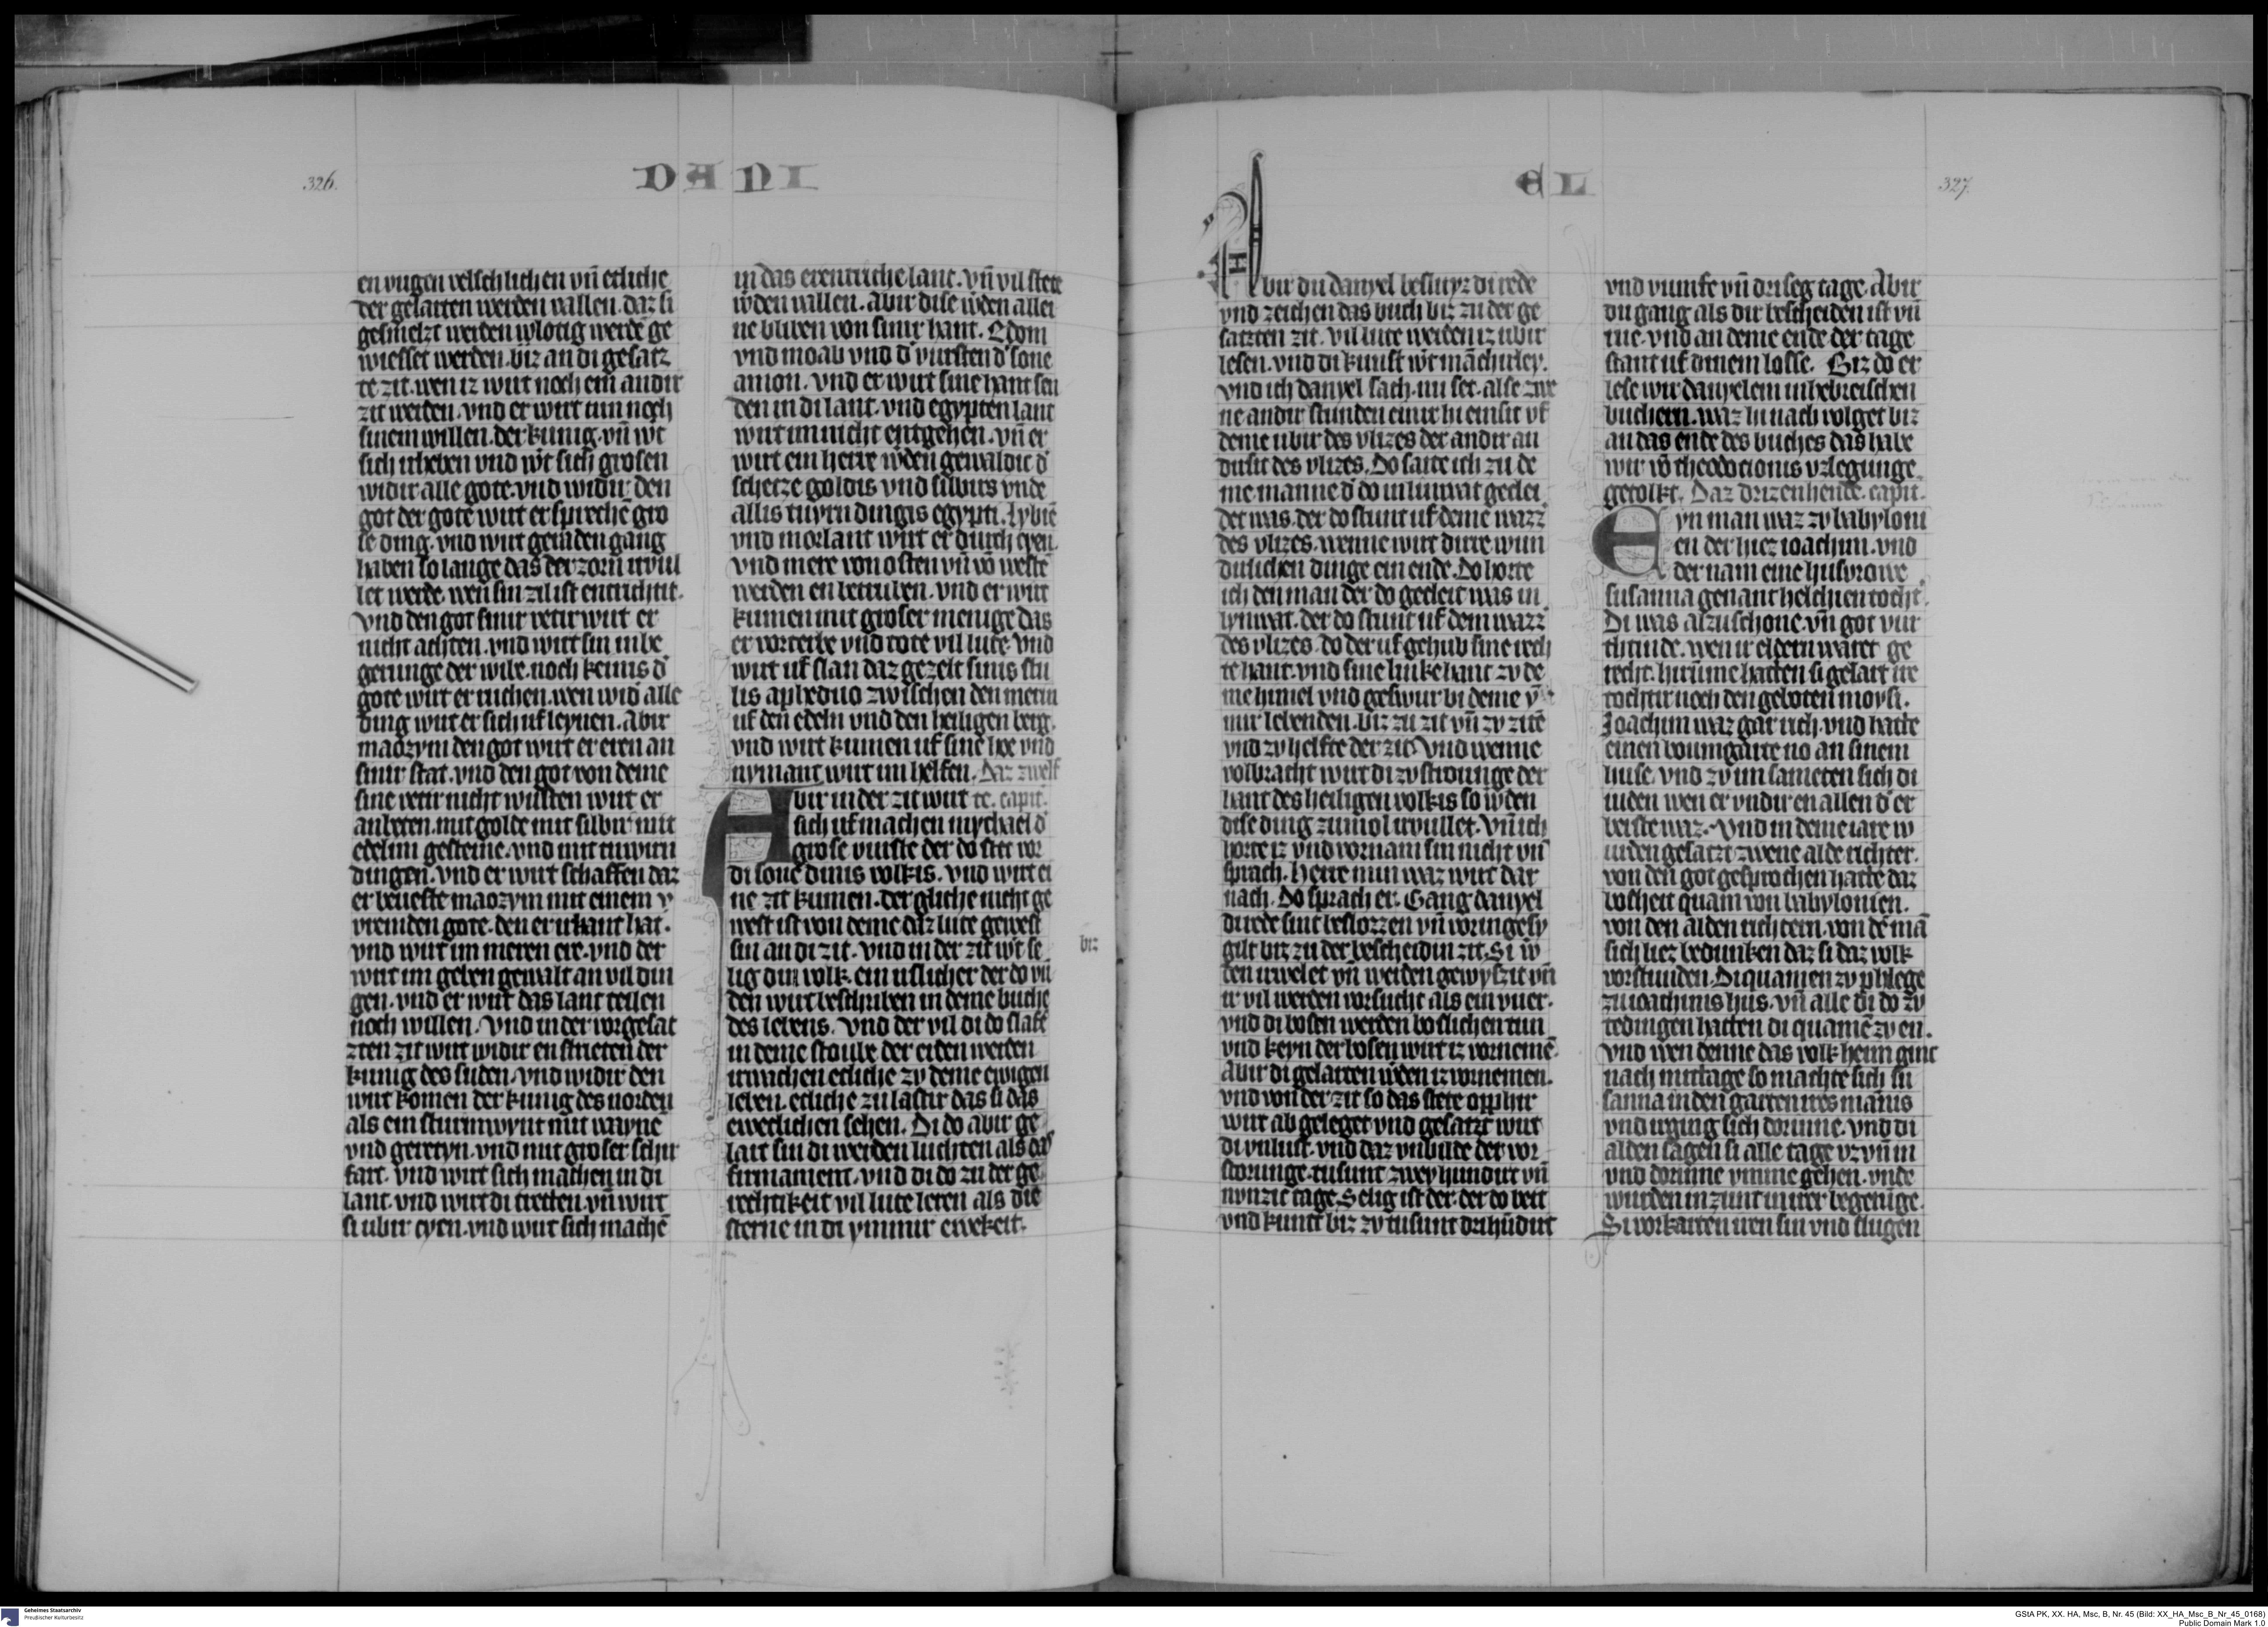 326.
DANI
en vugen velschlichen vn̄ etliche
der gelarten werden vallen. daz si
gesmelzt werden vzlotig werdē ge
wiesset werden. biz an di gesatz
te zit. wen iz wirt noch ein andir
zit werden. vnd er wirt tun noch
sinem willen. der kunig. vn̄ wt
sich irheben vnd wirt sich grosen
widir alle gote. vnd widir den
got der gote wirt er sprechē gro
se ding. vnd wirt geraden gang
haben so lange das der zorn irvul
let werde. wen sin zil ist entrichtit.
Vnd den got sinir vetir wirt er
nicht achten. vnd wirt sin in be
gerunge der wibe. noch keinis d'
gote wirt er ruchen. wen wid' alle
ding wirt er sich uf leynen. Abir
maozym den got wirt er eren an
sinir stat. vnd den got von deme
sine vetir nicht wusten wirt er
anbeten. mit golde mit silbir mit
edelim gesteine. vnd mit tuwirn
dingen. vnd er wirt schaffen daz
er beueste maozym mit einem v
vremden gote. den er irkant hat.
vnd wirt im meren ere. vnd der
wirt im geben gewalt an vil din
gen. vnd er wirt das lant teilen
noch willen. Vnd in der vorgesat
zten zit wirt widir en strieten der
kunig des suden. vnd widir den
wirt komen der kunig des norden
als ein sturmwynt mit wayne
vnd geretyn. vnd mit groser schif
fart. vnd wirt sich machen in di
lant. vnd wirt di tretten. vn̄ wirt
si ubir cyen. vnd wirt sich machē
in das erentriche lant. vn̄ vil stete
w'den vallen. Abir dise w'den allei
ne bliben von sinir hant. Edom
vnd moab vnd d' vursten d' sone
amon. vnd er wirt sine hant sen
den in di lant. vnd egypten lant
wirt im nicht entgehen. vn̄ er
wirt ein herre w'den gewaldic d'
schetze goldis vnd silbirs vnde
allis tuyrn dingis egypti. lybiē
vnd morlant wirt er durch cyen.
vnd mere von osten vn̄ vō westē
werden en betruben. vnd er wirt
kumen mit groser menige das
er vorterbe vnd tote vil lute. Vnd
wirt uf slan daz gezelt sinis stu
lis aphedno zwischen den merin
uf den edeln vnd den heiligen berg.
vnd wirt kumen uf sine hoe vnd
nymant wirt im helfen. Daz zwelf
Abir in der zit wirt te. capit.
sich uf machen mychael d'
grose vurste der do stet vor
di sone dinis volkis. vnd wirt ei
ne zit kumen. der gliche nicht ge
west ist von deme daz lute gewest
sin an di zit. vnd in der zit wt se
lig din volk. ein itlicher der do vū
den wirt beschriben in deme buche
des lebens. Vnd der vil di do slafē
in deme stoube der erden werden
irwachen etliche zu deme ewigen
leben. etliche zu lastir das si das
eweclichen sehen. Di do abir ge
lart sin di werden luchten als das
firmament. vnd di do zu der ge
rechtikeit vil lute leren als die
sterne in di ymmir ewekeit.
biz
EL
327.
Abir du danyel besluyz di rede
vnd zeichen das buch biz zu der ge
satzten zit. vil lute werden iz ubir
lesen. vnd di kunst w't māchirley.
Vnd ich danyel sach. nu set. alse zwe
ne andir stunden einir hi einsit uf
deme ubir des vlizes der andir an
disit des vlizes. Do saite ich zu de
me manne d' do in linwat geclei
det was. der do stunt uf deme wazz
des vlizes. wenne wirt dirre wun
dirlichen dinge ein ende. Do horte
ich den man der do gecleit was in
lynwat. der do stunt uf dem wazz
des vlizes. do der uf gehub sine rech
te hant. vnd sine linke hant zu de
me himel vnd geswur bi deme y
mir lebenden. biz zu zit vn̄ zu zitē
vnd zu helfte der zit. Vnd wenne
volbracht wirt di zustrounge der
hant des heiligen volkis so w'den
dise ding zumol irvullet. Vn̄ ich
horte iz vnd vornam sin nicht vn̄
sprach. Herre min waz wirt dar
nach. Do sprach er. Gang danyel
di rede sint beslozzen vn̄ voringesy
gilt biz zu der bescheidin zit. Si w'
den irwelet vn̄ werden gewyszit vn̄
ir vil werden vorsucht als ein vuer.
vnd di bosen werden boslichen tun
vnd keyn der bosen wirt iz vornemē.
Abir di gelarten w'den iz vornemen.
vnd von der zit so das stete opphir
wirt ab geleget vnd gesatzt wirt
di vnlust. vnd daz vnbilde der vor
storunge. tusunt zwey hundirt vn̄
nvnzic tage. Selig ist der. der do beit
vnd kumt biz zu tusunt drihūdirt
vnd vumfe vn̄ driseg tage. Abir
du gang als dir bescheiden ist vn̄
rue. vnd an deme ende der tage
stant uf dinem losse. Biz do er
lese wir danyelem in hebreischen
buchern. waz hi nach volget biz
an das ende des buches das habe
wir vō theodocionis vzlegunge.
gevolkt. Daz drizenhende. capit.
Eyn man waz zu babyloni
en der hiez ioachim. vnd
der nam eine husvrowe
susanna genant helchien tocht'.
Di was alzu schone vn̄ got vur
chtinde. wen ir eldern waren ge
recht. hirumme hatten si gelart ire
tochtir noch den geboten moysi.
Joachim waz gar rich. vnd hatte
einen boumgarte no an sinem
huse. vnd zu im sameten sich di
iuden wen er vndir en allen d' er
berste waz. Vnd in deme iare w
urden gesatzt zwene alde richter.
von den got gesprochen hatte daz
bosheit quam von babylonien.
von den alden richtern. von dē mā
sich liez bedunken daz si daz volk
vorstunden. Di quamen zu phlege
zu ioachimis hus. vn̄ alle di do zu
tedingen hatten di quamē zu en.
Vnd wen denne das volk heim ginc
nach mittage so machte sich su
sanna in den garten ires mannis
vnd irging sich dorinne. vnd di
alden sagen si alle tage vz vn̄ in
vnd dorinne ymme gehen. vnde
wurden inzunt in irer begerūge.
Si vorkarten iren sin vnd slugen
Geheimes Staatsarchiv
Preußischer Kulturbesitz
GStA PK, XX. HA, Msc, B, Nr. 45 (Bild: XX_HA_Msc_B_Nr_45_0168)
Public Domain Mark 1.0